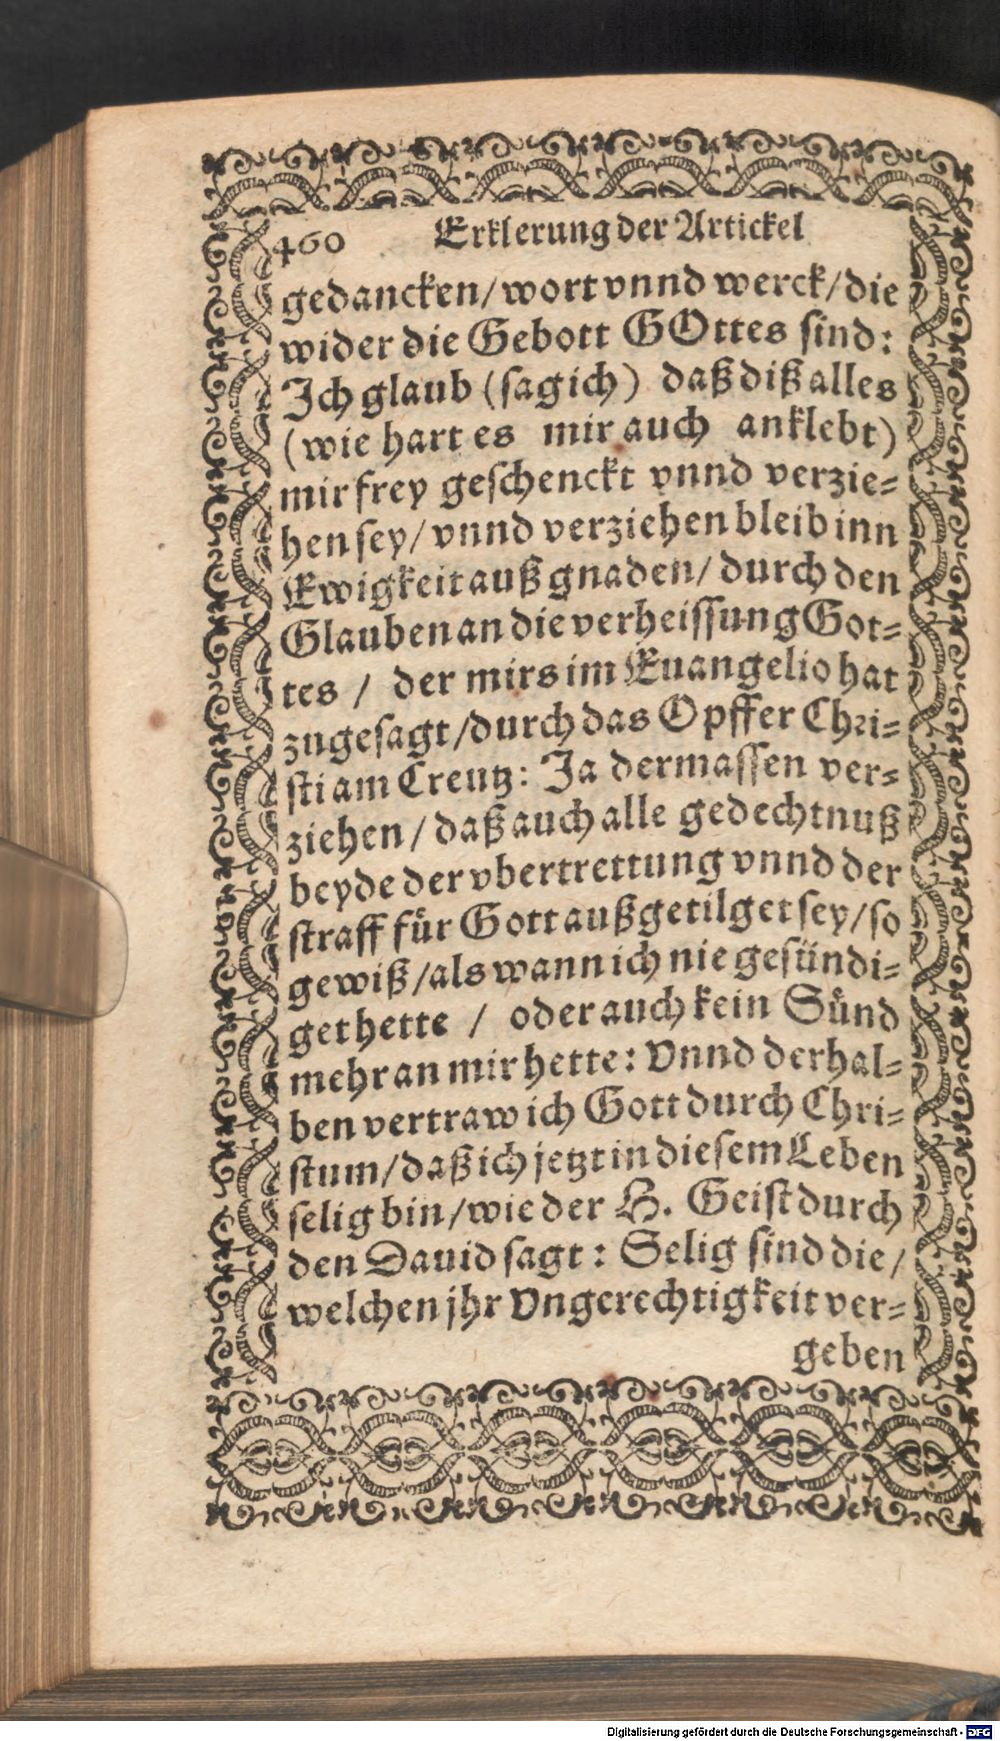 460 Erklerung der Artickel
gedancken/ wort vnnd werck/ die
wider die Gebott GOttes sind:
Ich glaub (sag ich) daß diß alles
(wie hart es mir auch anklebt)
mir frey geschenckt vnnd verzie=
hen sey/ vnnd verziehen bleib inn
Ewigkeit auß gnaden/ durch den
Glauben an die verheissung Got=
tes / der mirs im Euangelio hat
zugesagt/ durch das Opffer Chri=
sti am Creutz: Ja dermassen ver=
ziehen/ daß auch alle gedechtnuß
beyde der vbertrettung vnnd der
straff für Gott außgetilget sey/ so
gewiß/ als wann ich nie gesündi=
get hette / oder auch kein Sünd
mehr an mir hette: Vnnd derhal=
ben vertraw ich Gott durch Chri=
stum/ daß ich jetzt in diesem Leben
selig bin/ wie der H. Geist durch
den Dauid sagt: Selig sind die/
welchen jhr Vngerechtigkeit ver=
geben
Digitalisierung gefördert durch die Deutsche Forschungsgemeinschaft - DFG